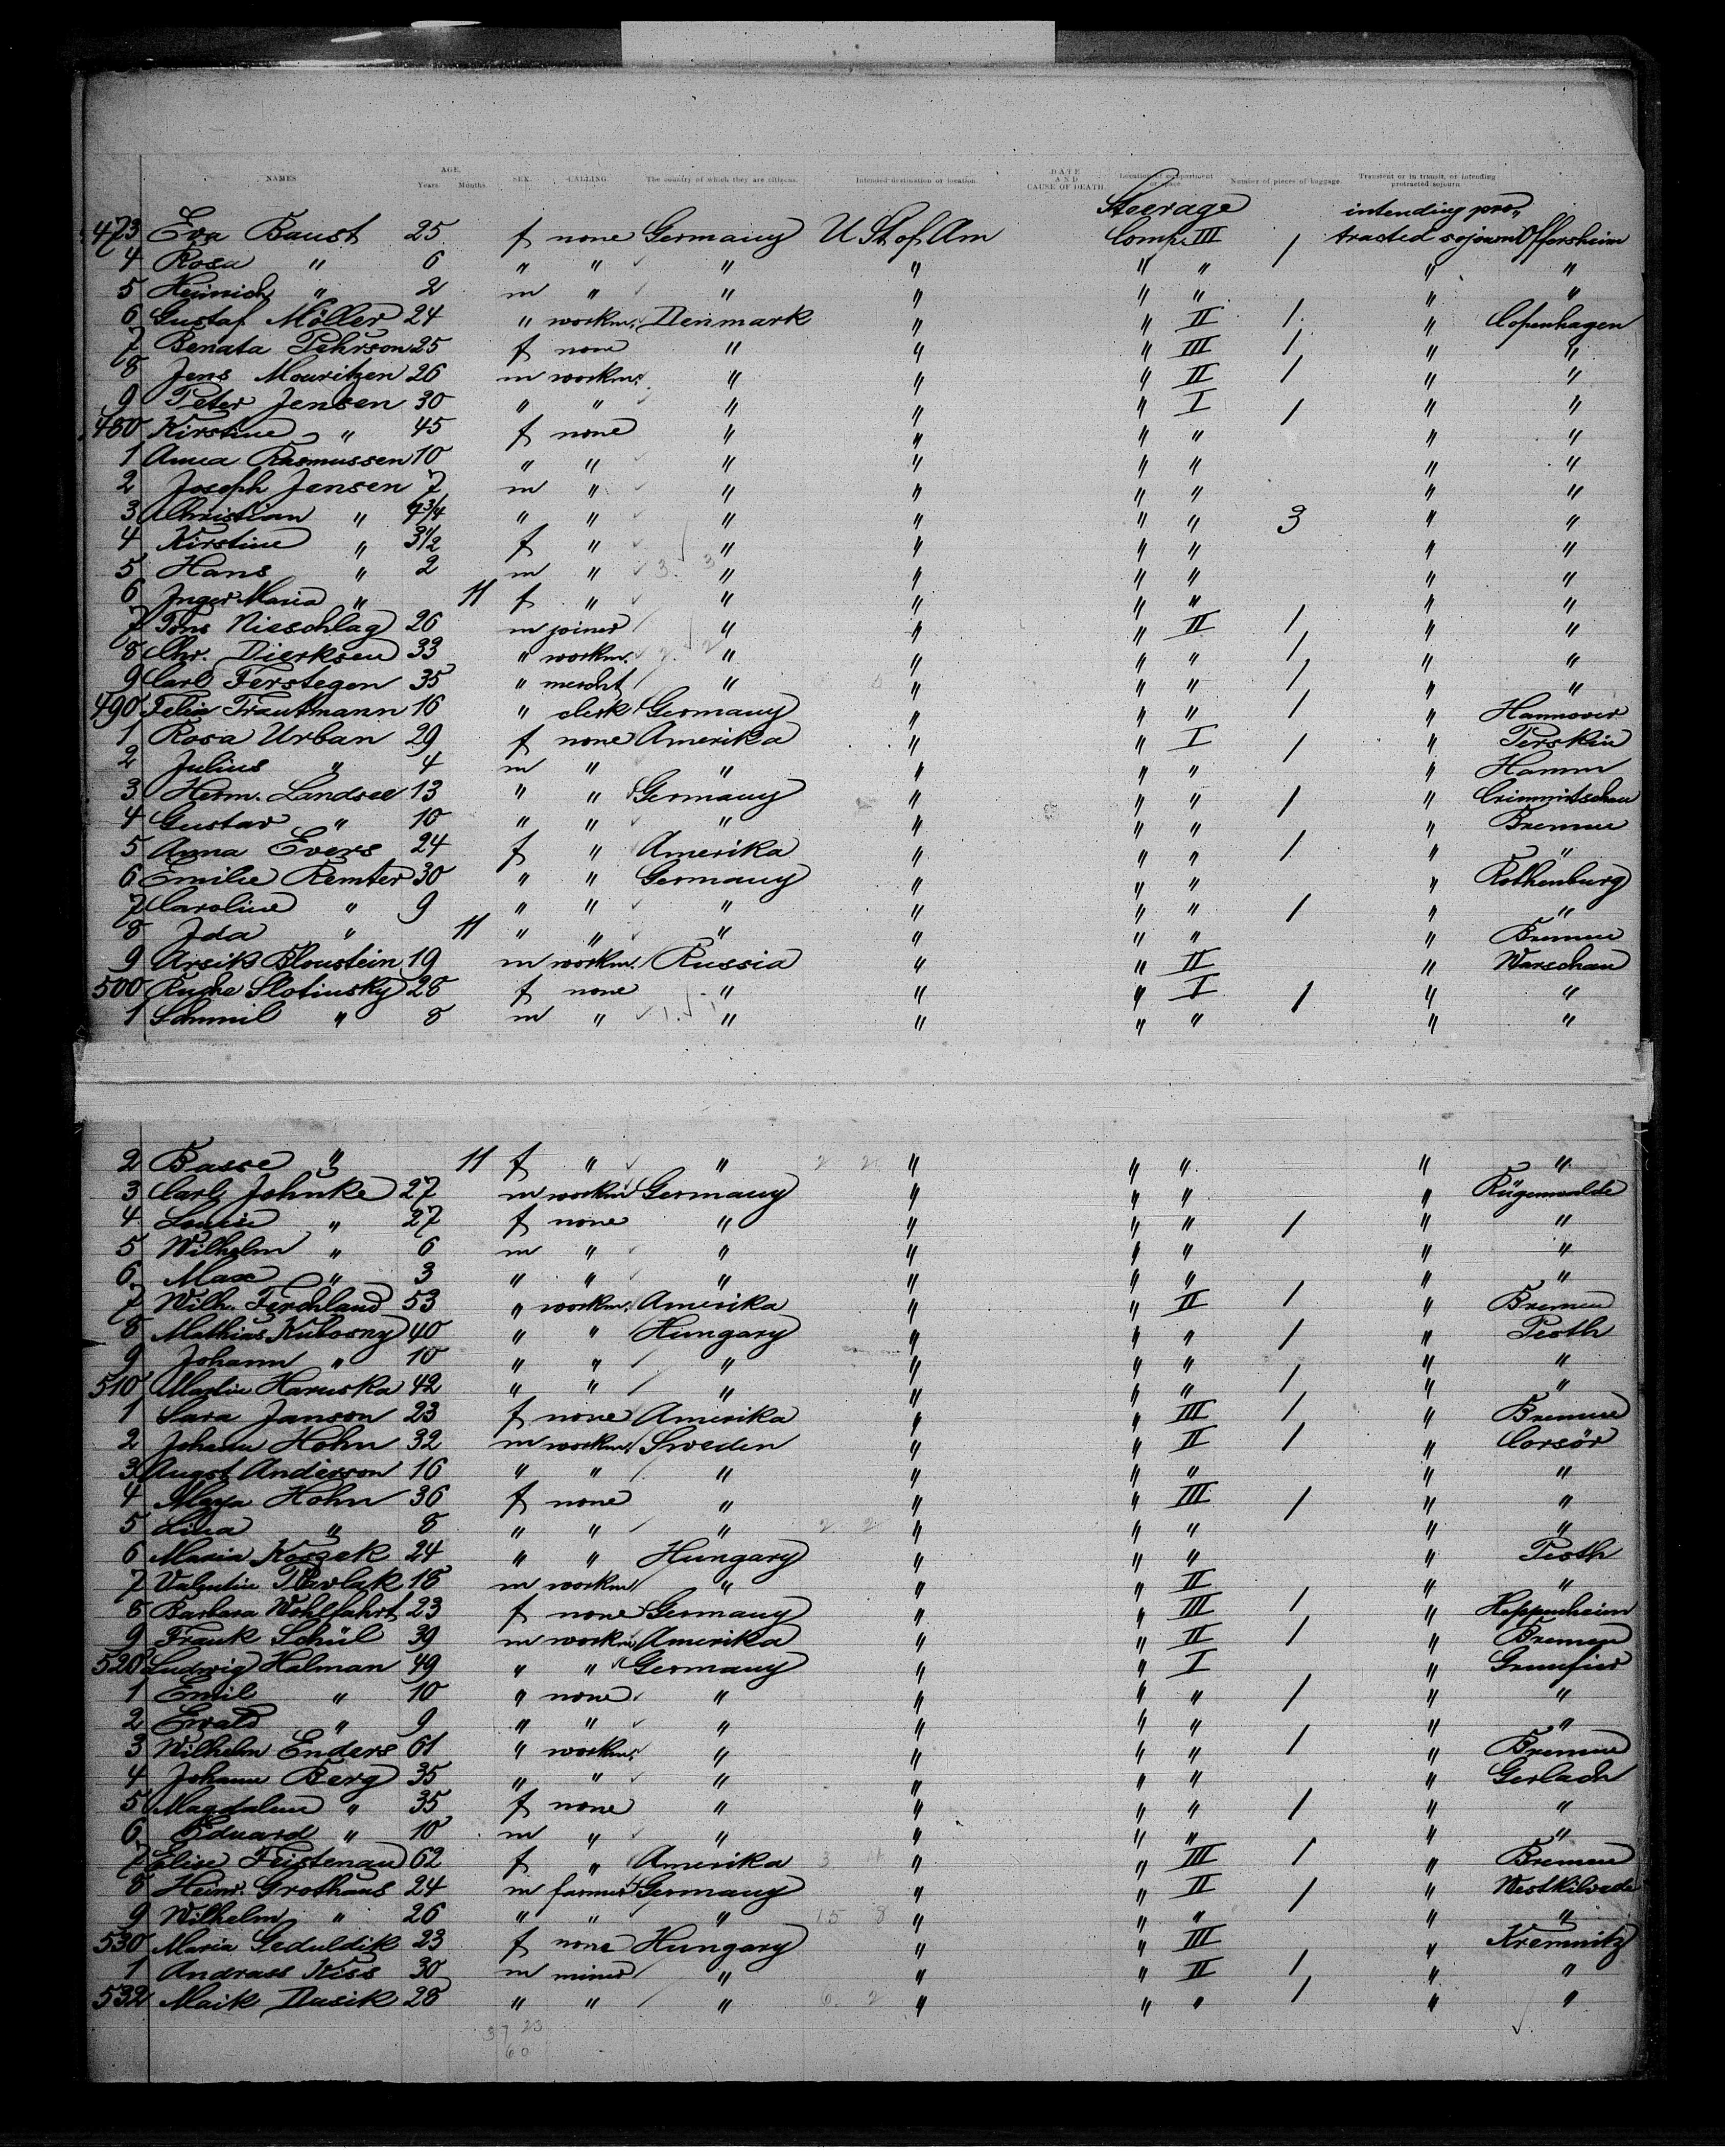 NAMES AGE. Years. Months. SEX. CALLING. The country of which they are citizens. Intended destination or location. DATE AND CAUSE OF DEATH. Location of compartment or space. Number of pieces of baggage. Transient or in transit, or intending protracted sojourn
Steerage intending pro-
473 Eva Baust 25 f none Germany U St of Am Comp. III 1 tracted sojourn Offersheim
4 Rosa " 6 " " " " " " " "
5 Heinrich " 2 m " " " " " " "
6 Gustaf Möller 24 " workm. Denmark " " II 1 " Copenhagen
7 Benata Pehrson 25 f none " " " III 1 " "
8 Jens Mouritzen 26 m workm. " " " II 1 " "
9 Peter Jensen 30 " " " " " I 1 " "
480 Kirstine " 45 f none " " " " " "
1 Anna Rasmussen 10 " " " " " " " "
2 Joseph Jensen 7 m " " " " " " "
3 Christian " 4 3/4 " " " " " " 3 " "
4 Kirstine " 3 1/2 f " " " " " " "
5 Hans " 2 m " " " " " " "
6 Inger Maria " 11 f " " " " " " "
7 Töns Nieschlag 26 m joiner " " " II 1 " "
8 Chr. Dierksen 33 " workm. " " " " 1 " "
9 Carl Ferstegen 35 " mercht " " " " 1 " "
490 Felix Trautmann 16 " clerk Germany " " " 1 " Hannover
1 Rosa Urban 29 f none Amerika " " I 1 " Perskin
2 Julius " 4 m " " " " " " Hamm
3 Herm. Landsee 13 " " Germany " " " 1 " Crimmitschau
4 Gustav " 10 " " " " " " " Bremen
5 Anna Evers 24 f " Amerika " " " 1 " "
6 Emilie Remter 30 " " Germany " " " " Rothenburg
7 Caroline " 9 " " " " " " 1 " "
8 Ida " 11 " " " " " " " Bremen
9 Arsik Bloustein 19 m workm. Russia " " II " Warschau
500 Ruche Slotinsky 28 f none " " " I 1 " "
1 Schmil " 8 m " " " " " " "
2 Basse " 11 f " " " " " " "
3 Carl Johnke 27 m workm Germany " " " " Rügenwalde
4 Louise " 27 f none " " " " 1 " "
5 Wilhelm " 6 m " " " " " " "
6 Max " 3 " " " " " " " "
7 Wilh. Ferchland 53 " workm. Amerika " " II 1 " Bremen
8 Mathias Kubosny 40 " " Hungary " " " 1 " Pesth
9 Johann " 10 " " " " " " " "
510 Martin Hanuska 42 " " " " " " 1 " "
1 Sara Janson 23 f none Amerika " " III 1 " Bremen
2 Johann Hohn 32 m workm Sweden " " II 1 " Corsör
3 Augst Anderson 16 " " " " " " " "
4 Maya Hohn 36 f none " " " III 1 " "
5 Lina " 8 " " " " " " " "
6 Maria Koszek 24 " " Hungary " " " " Pesth
7 Valentin Pavlak 18 m workm " " " II " "
8 Barbara Wohlfahrt 23 f none Germany " " III 1 " Heppenheim
9 Frank Schül 39 m workm Amerika " " II 1 " Bremen
520 Ludwig Halman 49 " " Germany " " I " Grunfier
1 Emil " 10 " none " " " " 1 " "
2 Ewald " 9 " " " " " " " "
3 Wilhelm Enders 61 " workm. " " " " 1 " Bremen
4 Johann Berg 35 " " " " " " " Gerlach
5 Magdalena " 35 f none " " " " 1 " "
6 Eduard " 10 m " " " " " " "
7 Elise Feistenau 62 f " Amerika " " III 1 " Bremen
8 Heinr. Grothaus 24 m farmer Germany " " II 1 " Westkilvede
9 Wilhelm " 26 " " " 15 8 " " " " "
530 Maria Geduldik 23 f none Hungary " " III " Kremnitz
1 Andrass Kiss 30 m miner " " " II 1 " "
532 Maik Dusik 28 " " " 6 2 " " " 1 " "
37 23
60